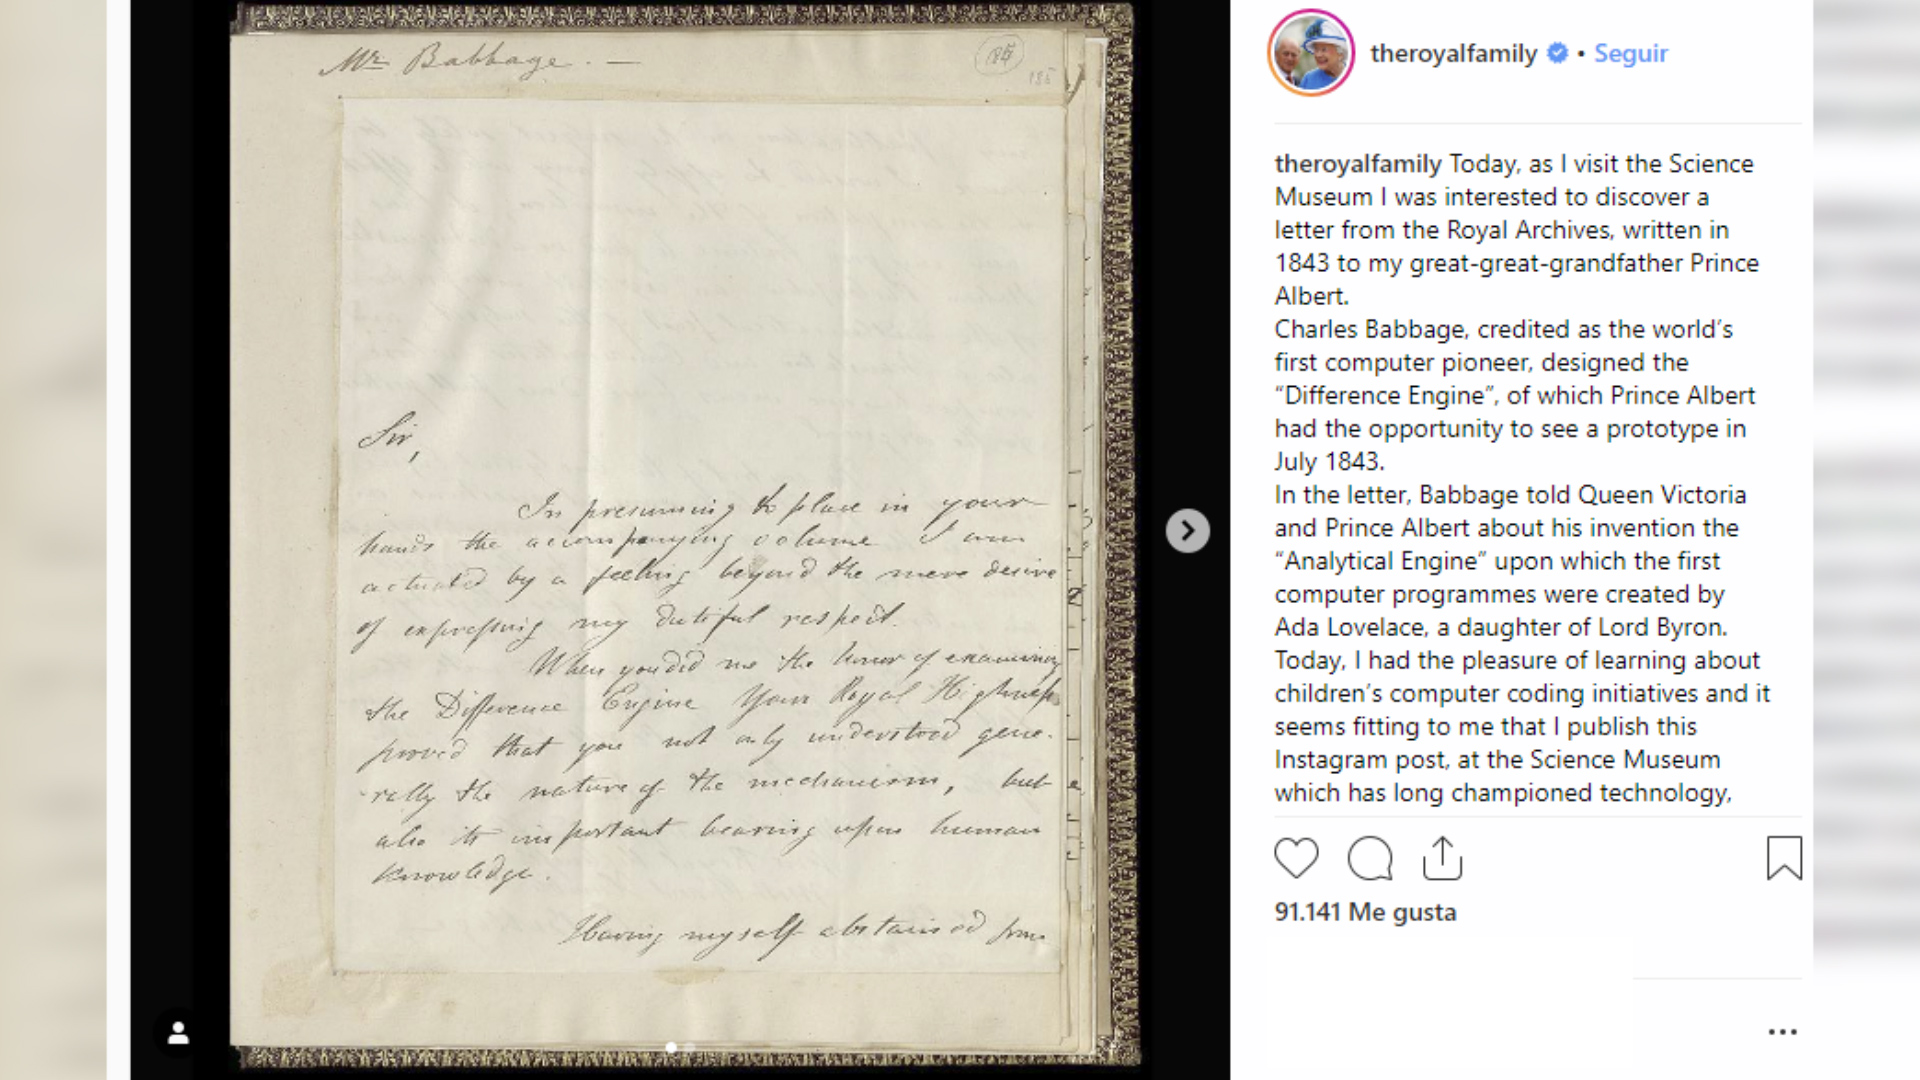 Mr Babbage. —
185
Sir,
In presuming to place in your
hands the accompanying volume I am
actuated by a feeling beyond the mere desire
of expressing my dutiful respect.
When you did me the honor of examining
the Difference Engine Your Royal Highness
proved that you not only understood gene-
rally the nature of the mechanism, but
also its important bearing upon human
knowledge.
Having myself abstained from
theroyalfamily • Seguir
theroyalfamily Today, as I visit the Science
Museum I was interested to discover a
letter from the Royal Archives, written in
1843 to my great-great-grandfather Prince
Albert.
Charles Babbage, credited as the world’s
first computer pioneer, designed the
“Difference Engine”, of which Prince Albert
had the opportunity to see a prototype in
July 1843.
In the letter, Babbage told Queen Victoria
and Prince Albert about his invention the
“Analytical Engine” upon which the first
computer programmes were created by
Ada Lovelace, a daughter of Lord Byron.
Today, I had the pleasure of learning about
children’s computer coding initiatives and it
seems fitting to me that I publish this
Instagram post, at the Science Museum
which has long championed technology,
91.141 Me gusta